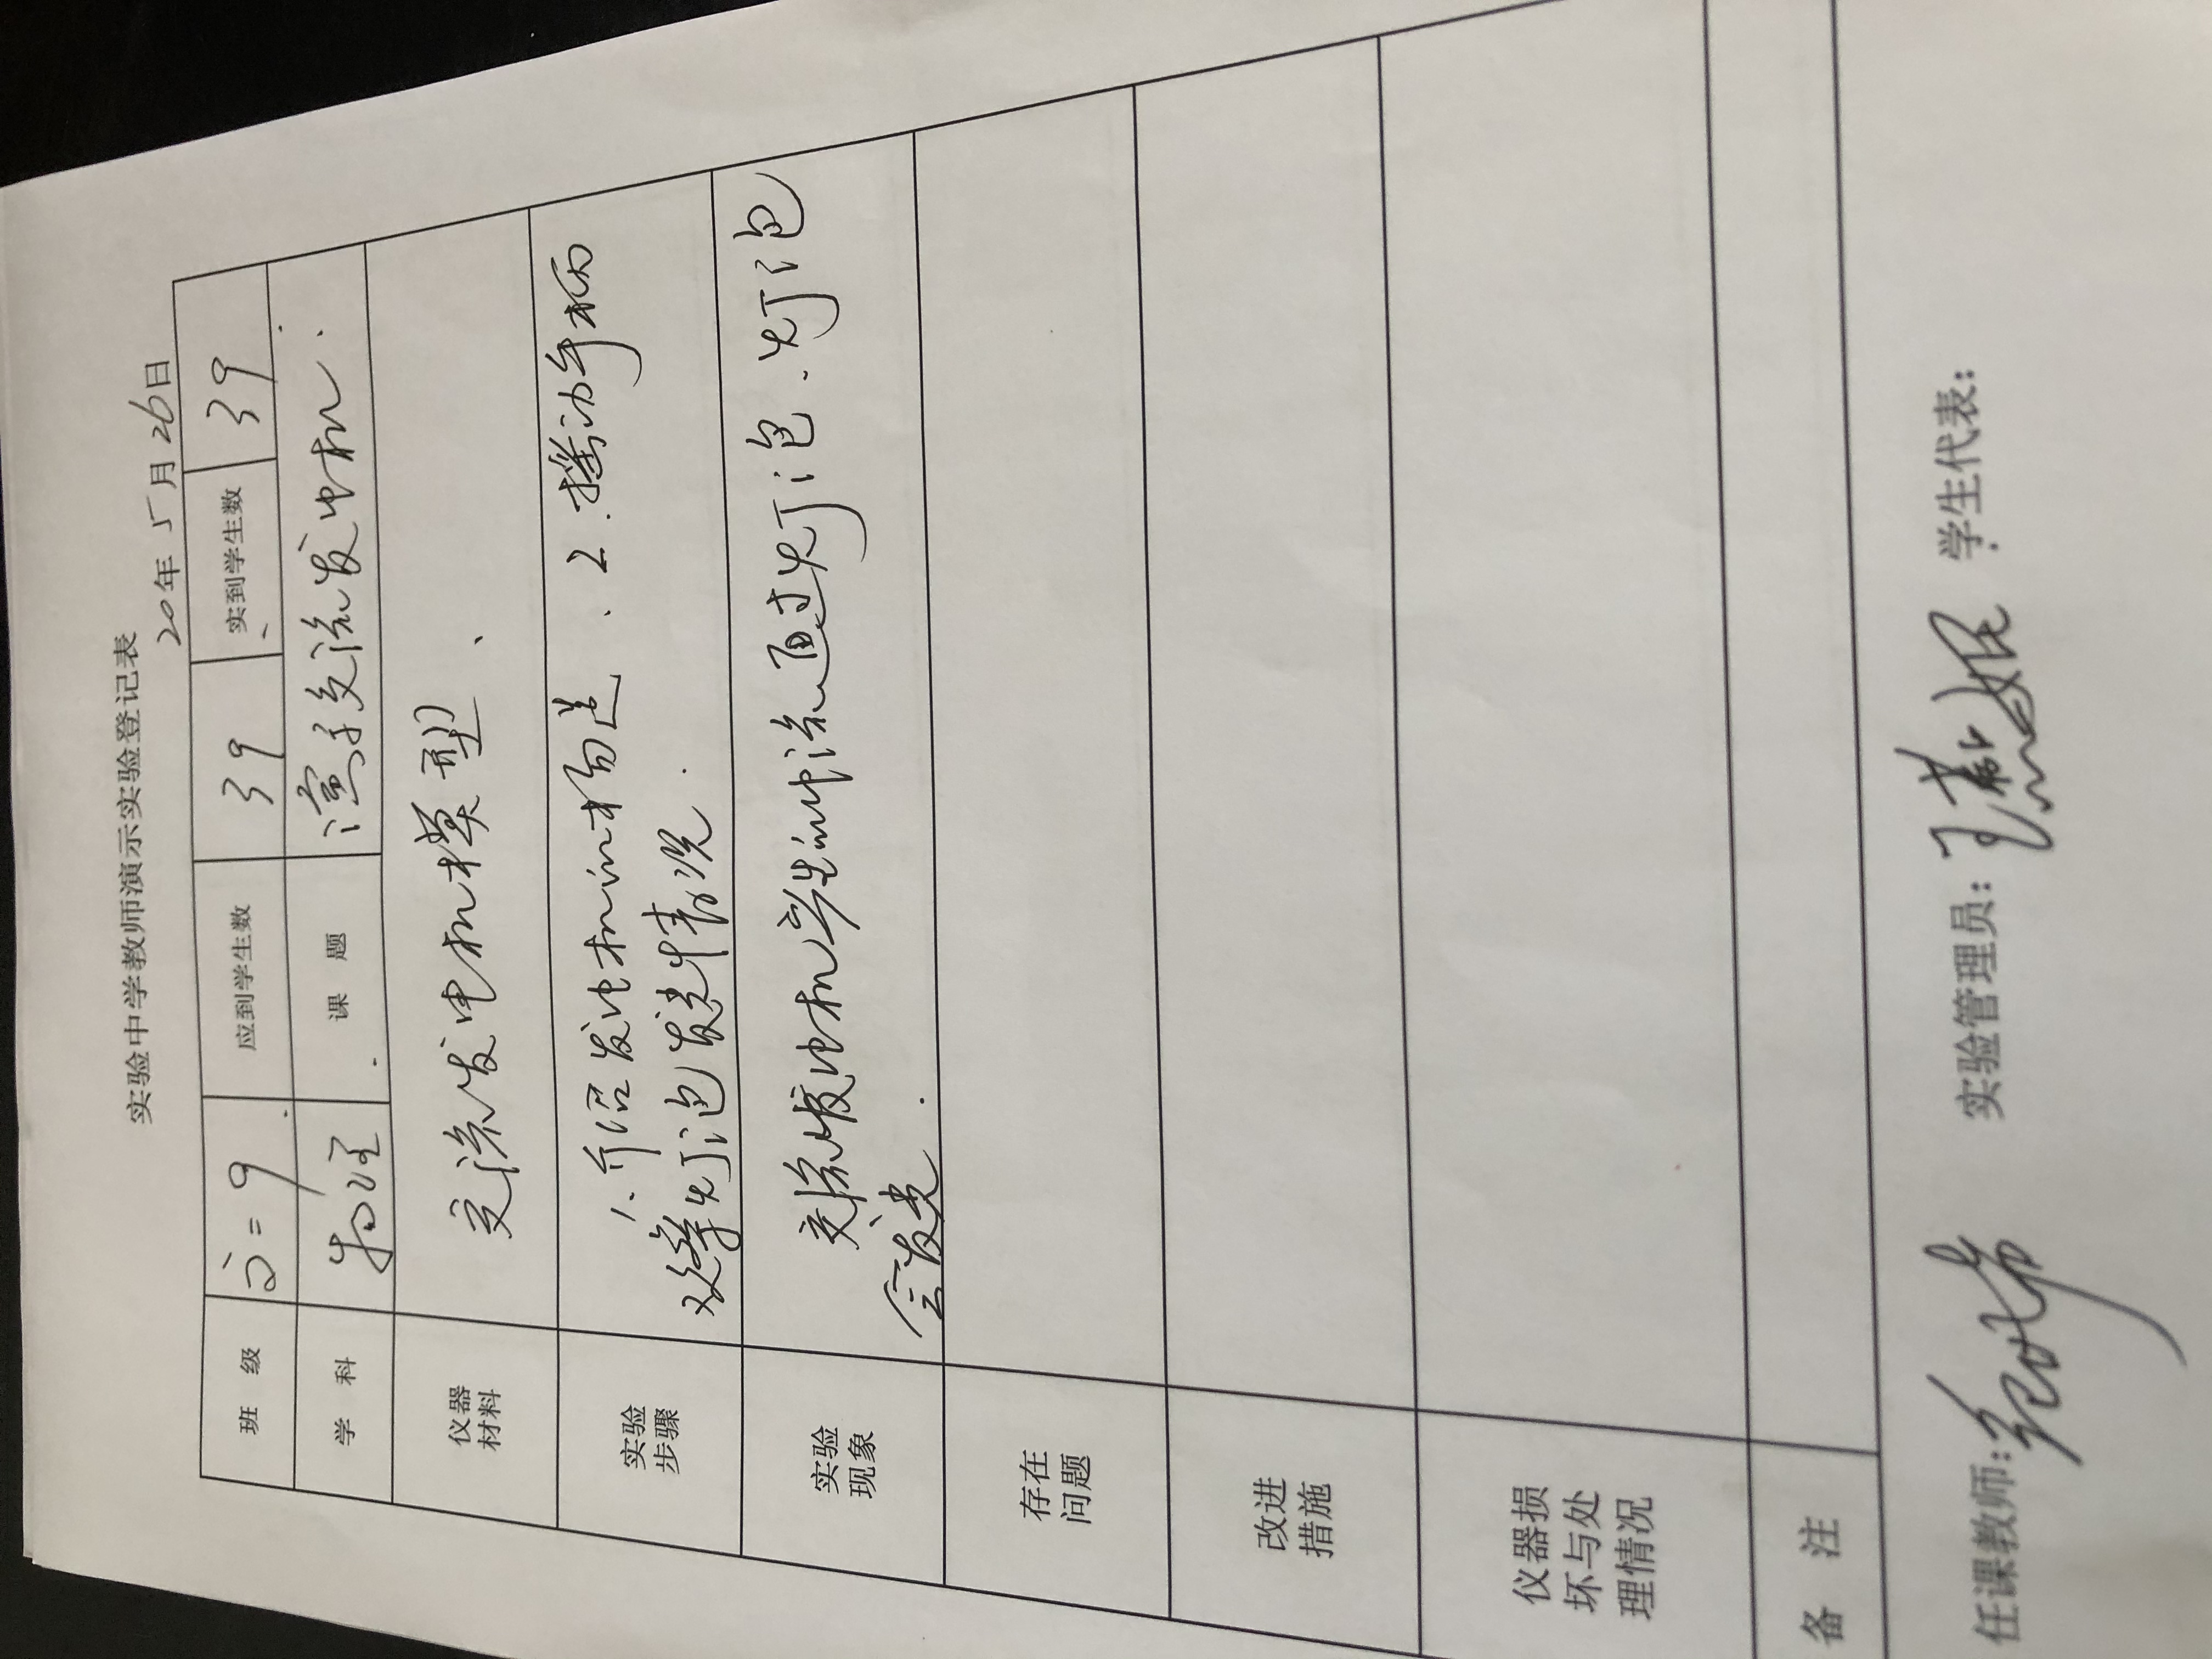 实验中学教师演示实验登记表
20年 5月 26日
班 级 高二9 应到学生数 39 实到学生数 39
学 科 物理 课 题 演示交流发电机.
仪器
材料
交流发电机模型、
实验
步骤
1.介绍发电机的构造、2.摇动手柄
观察灯泡发光情况.
实验
现象
交流发电机产生的电流通过灯泡.灯泡
会发光.
存在
问题
改进
措施
仪器损
坏与处
理情况
备 注
任课教师: 实验管理员: 王燕妮 学生代表: